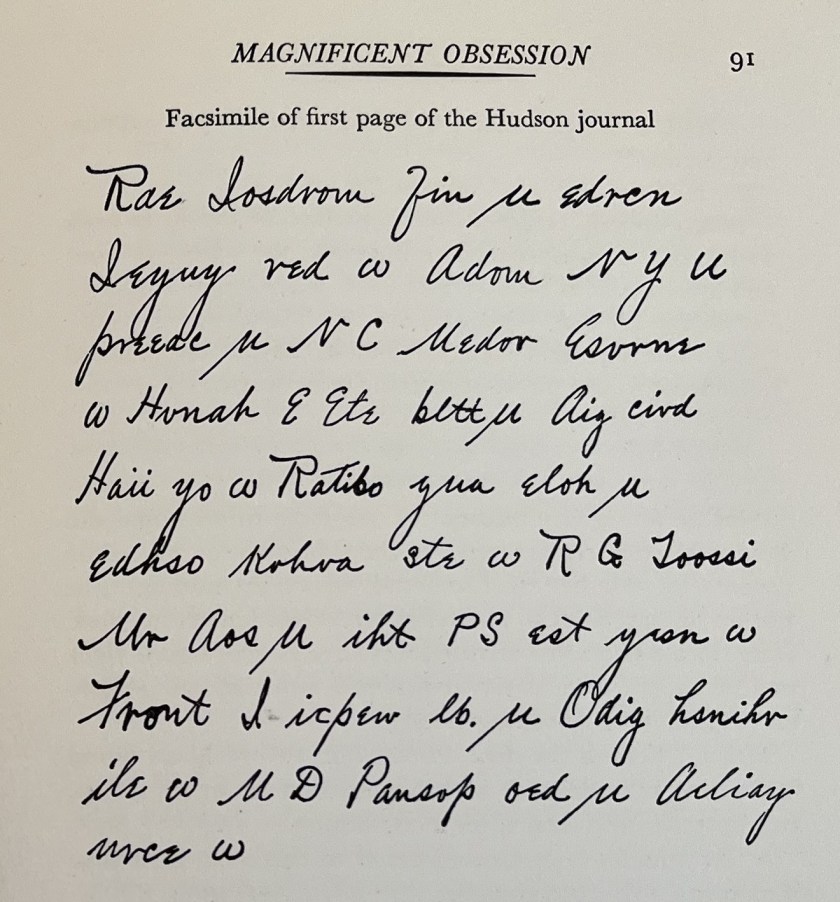 MAGNIFICENT OBSESSION 91
Facsimile of first page of the Hudson journal
Rae Iosdrom Fin μ edrcn
Ieyuy red ω Adom N Y u
preeac μ N C Medor Esvrne
ω Hvnah E Ete bltt μ Aig civd
Haii yo ω Ratibo yua eloh μ
edhso Kohva ste ω R G Toossi
Mr Aos μ iht PS est yesn ω
Front I icpew lb. μ Odig hsnihr
ile ω M D Pansop oed μ Aeliay
urce ω